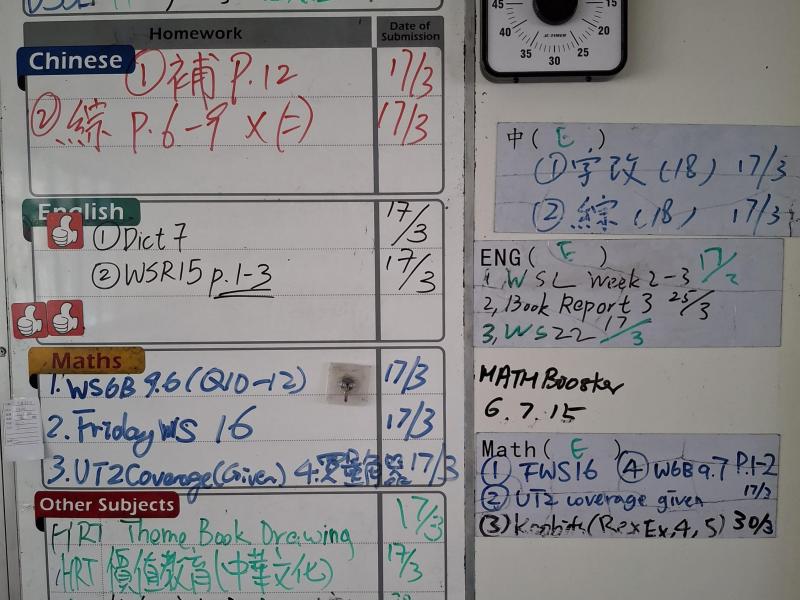 Homework
Date of Submission
Chinese
① 補 p.12 17/3
② 綜 p.6-9 x(二) 17/3
English
① Dict 7 17/3
② WSR15 p.1-3 17/3
Maths
1. WS6B 9.6 (Q10-12) 17/3
2. Friday WS 16 17/3
3. UT2 Coverage (Given) 4. 量角器 17/3
Other Subjects
HRT Theme Book Drawing 17/3
HRT 價值教育(中華文化) 17/3
45
15
40
20
35
30
25
中( E )
① 字改 (18) 17/3
② 綜 (18) 17/3
ENG( E )
1, WSL Week 2-3
2, Book Report 3 25/3
3, WS22 17/3
MATH Booster
6. 7. 15
Math( E )
① FWS16 ④ W6B 9.7 P.1-2
② UT2 coverage given 17/3
(Rex Ex, 4, 5) 30/3